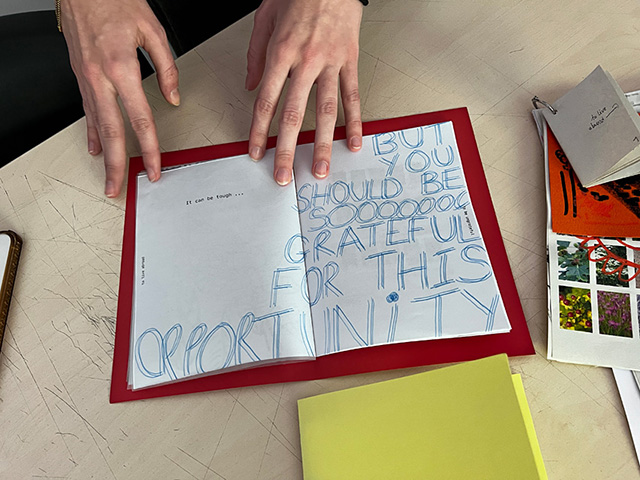 It can be tough ...
to live abroad
BUT
YOU
SHOULD BE
SOOOOOOO
GRATEFUL
FOR THIS
OPPORTUNiTY
to live
abroad